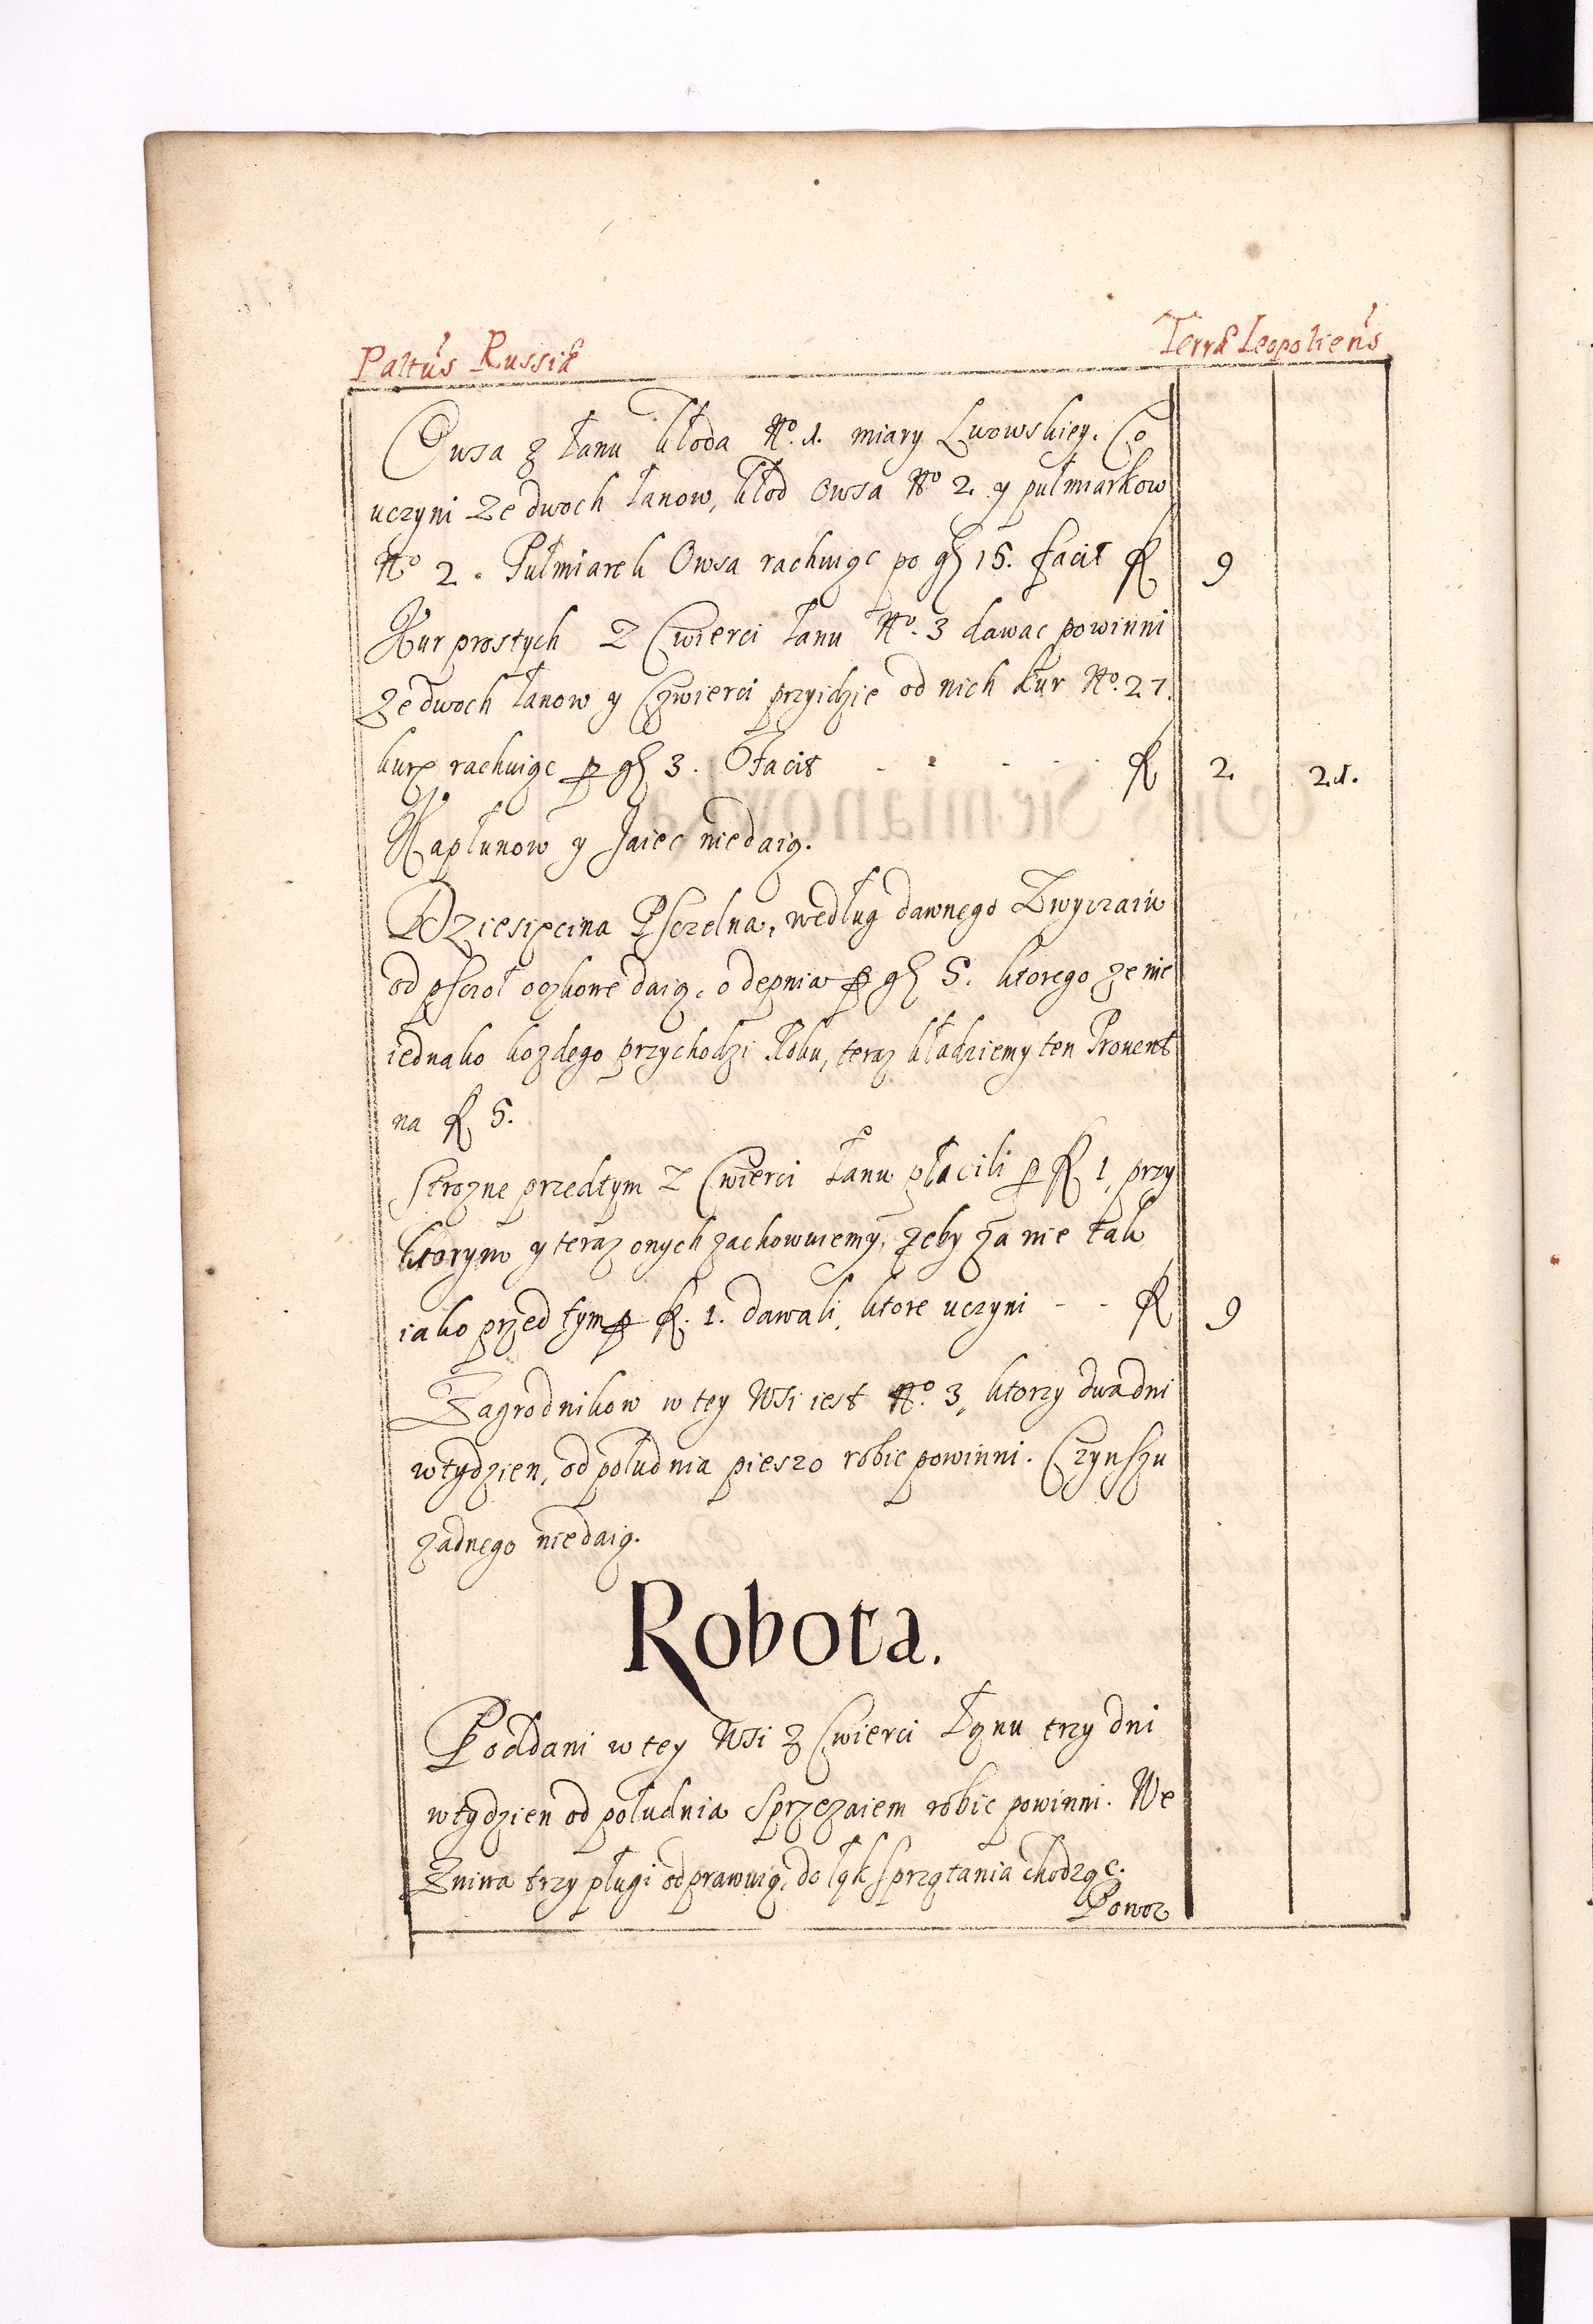 Paltus Russiæ
Terræ Leopoliens
Owsa z łanu kłoda No. 1. miary Lwowskiey. Co
uczyni ze dwoch łanow, kłod Owsa No 2. y pułmiarkow
No 2. Pułmiarek Owsa rachuiąc po gß 15. facit fl 9
Kur prostych z Cwierci łanu No. 3 dawac powinni
ze dwoch łanow y Czwierci przyidzie od nich kur No. 27.
kurę rachuiąc p gß 3. Ffacit - - - - - fl 2 21.
Kapłunow y Jaiec niedaią.
Dziesięcina Pszczelna, według dawnego Zwyczaiu
od pszczoł oczkowe daią, od epnia p gß 5. ktorego ze nie
iednako kozdego przychodzi Roku, teraz kładziemy ten Prouent
na fl 5.
Strozne przedtym z Cwierci łanu płacili p fl 1, przy
ktorym y teraz onych zachowuiemy, zeby za nie tak
iako przed tym p fl. 1. dawali, ktore uczyni - - fl 9
Zagrodnikow w tey Wsi iest No. 3, ktorzy dwa dni
w tydzien, od południa pieszo robic powinni. Czynszu
zadnego niedaią.
Robota.
Poddani w tey Wsi z Cwierci Łanu trzy dni
w tydzien od południa sprzezaiem robic powinni. We
Zniwa trzy pługi odprawuią, do łąk sprzątania chodzą c.
Powoz